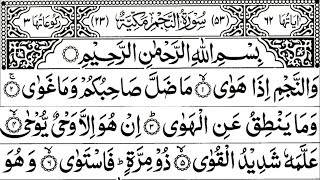 اٰیَاتُهَا ٦٢ (٥٣) سُوْرَةُ النَّجْمِ مَكِّیَّةٌ (٢٣) رُكُوْعَاتُهَا ٣
بِسْمِ اللّٰهِ الرَّحْمٰنِ الرَّحِیْمِ
وَالنَّجْمِ اِذَا هَوٰی ۙ۱ مَا ضَلَّ صَاحِبُكُمْ وَمَا غَوٰی ۚ۲
وَمَا یَنْطِقُ عَنِ الْهَوٰی ؕ۳ اِنْ هُوَ اِلَّا وَحْیٌ یُّوْحٰی ۙ۴
عَلَّمَهٗ شَدِیْدُ الْقُوٰی ۙ۵ ذُوْ مِرَّةٍ ؕ فَاسْتَوٰی ۙ۶ وَهُوَ